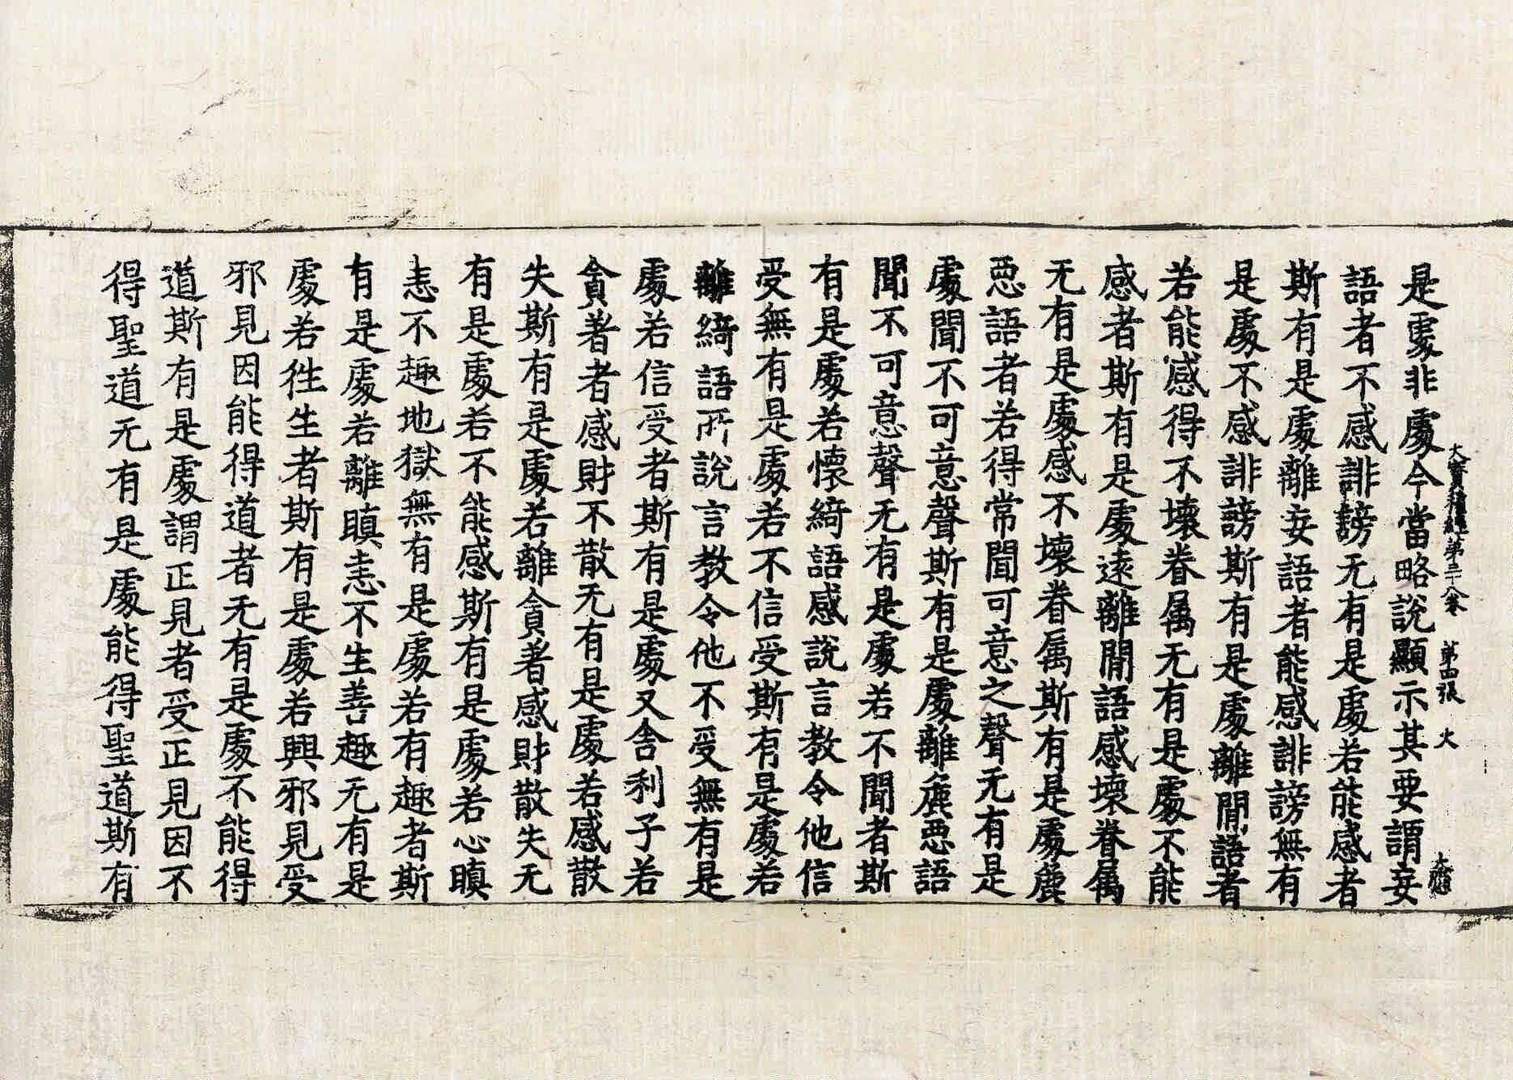 大寶積經第三十八卷 第四張 火
是處非處今當略說顯示其要謂妄
語者不感誹謗无有是處若能感者
斯有是處離妄語者能感誹謗無有
是處不感誹謗斯有是處離間語者
若能感得不壞眷属无有是處不能
感者斯有是處遠離間語感壞眷属
无有是處感不壞眷属斯有是處麁
惡語者若得常聞可意之聲无有是
處聞不可意聲斯有是處離麁惡語
聞不可意聲无有是處若不聞者斯
有是處若懷綺語感說言教令他信
受無有是處若不信受斯有是處若
離綺語所說言教令他不受無有是
處若信受者斯有是處又舍利子若
貪著者感財不散无有是處若感散
失斯有是處若離貪著感財散失无
有是處若不能感斯有是處若心瞋
恚不趣地獄無有是處若有趣者斯
有是處若離瞋恚不生善趣无有是
處若徃生者斯有是處若興邪見受
邪見因能得道者无有是處不能得
道斯有是處謂正見者受正見因不
得聖道无有是處能得聖道斯有